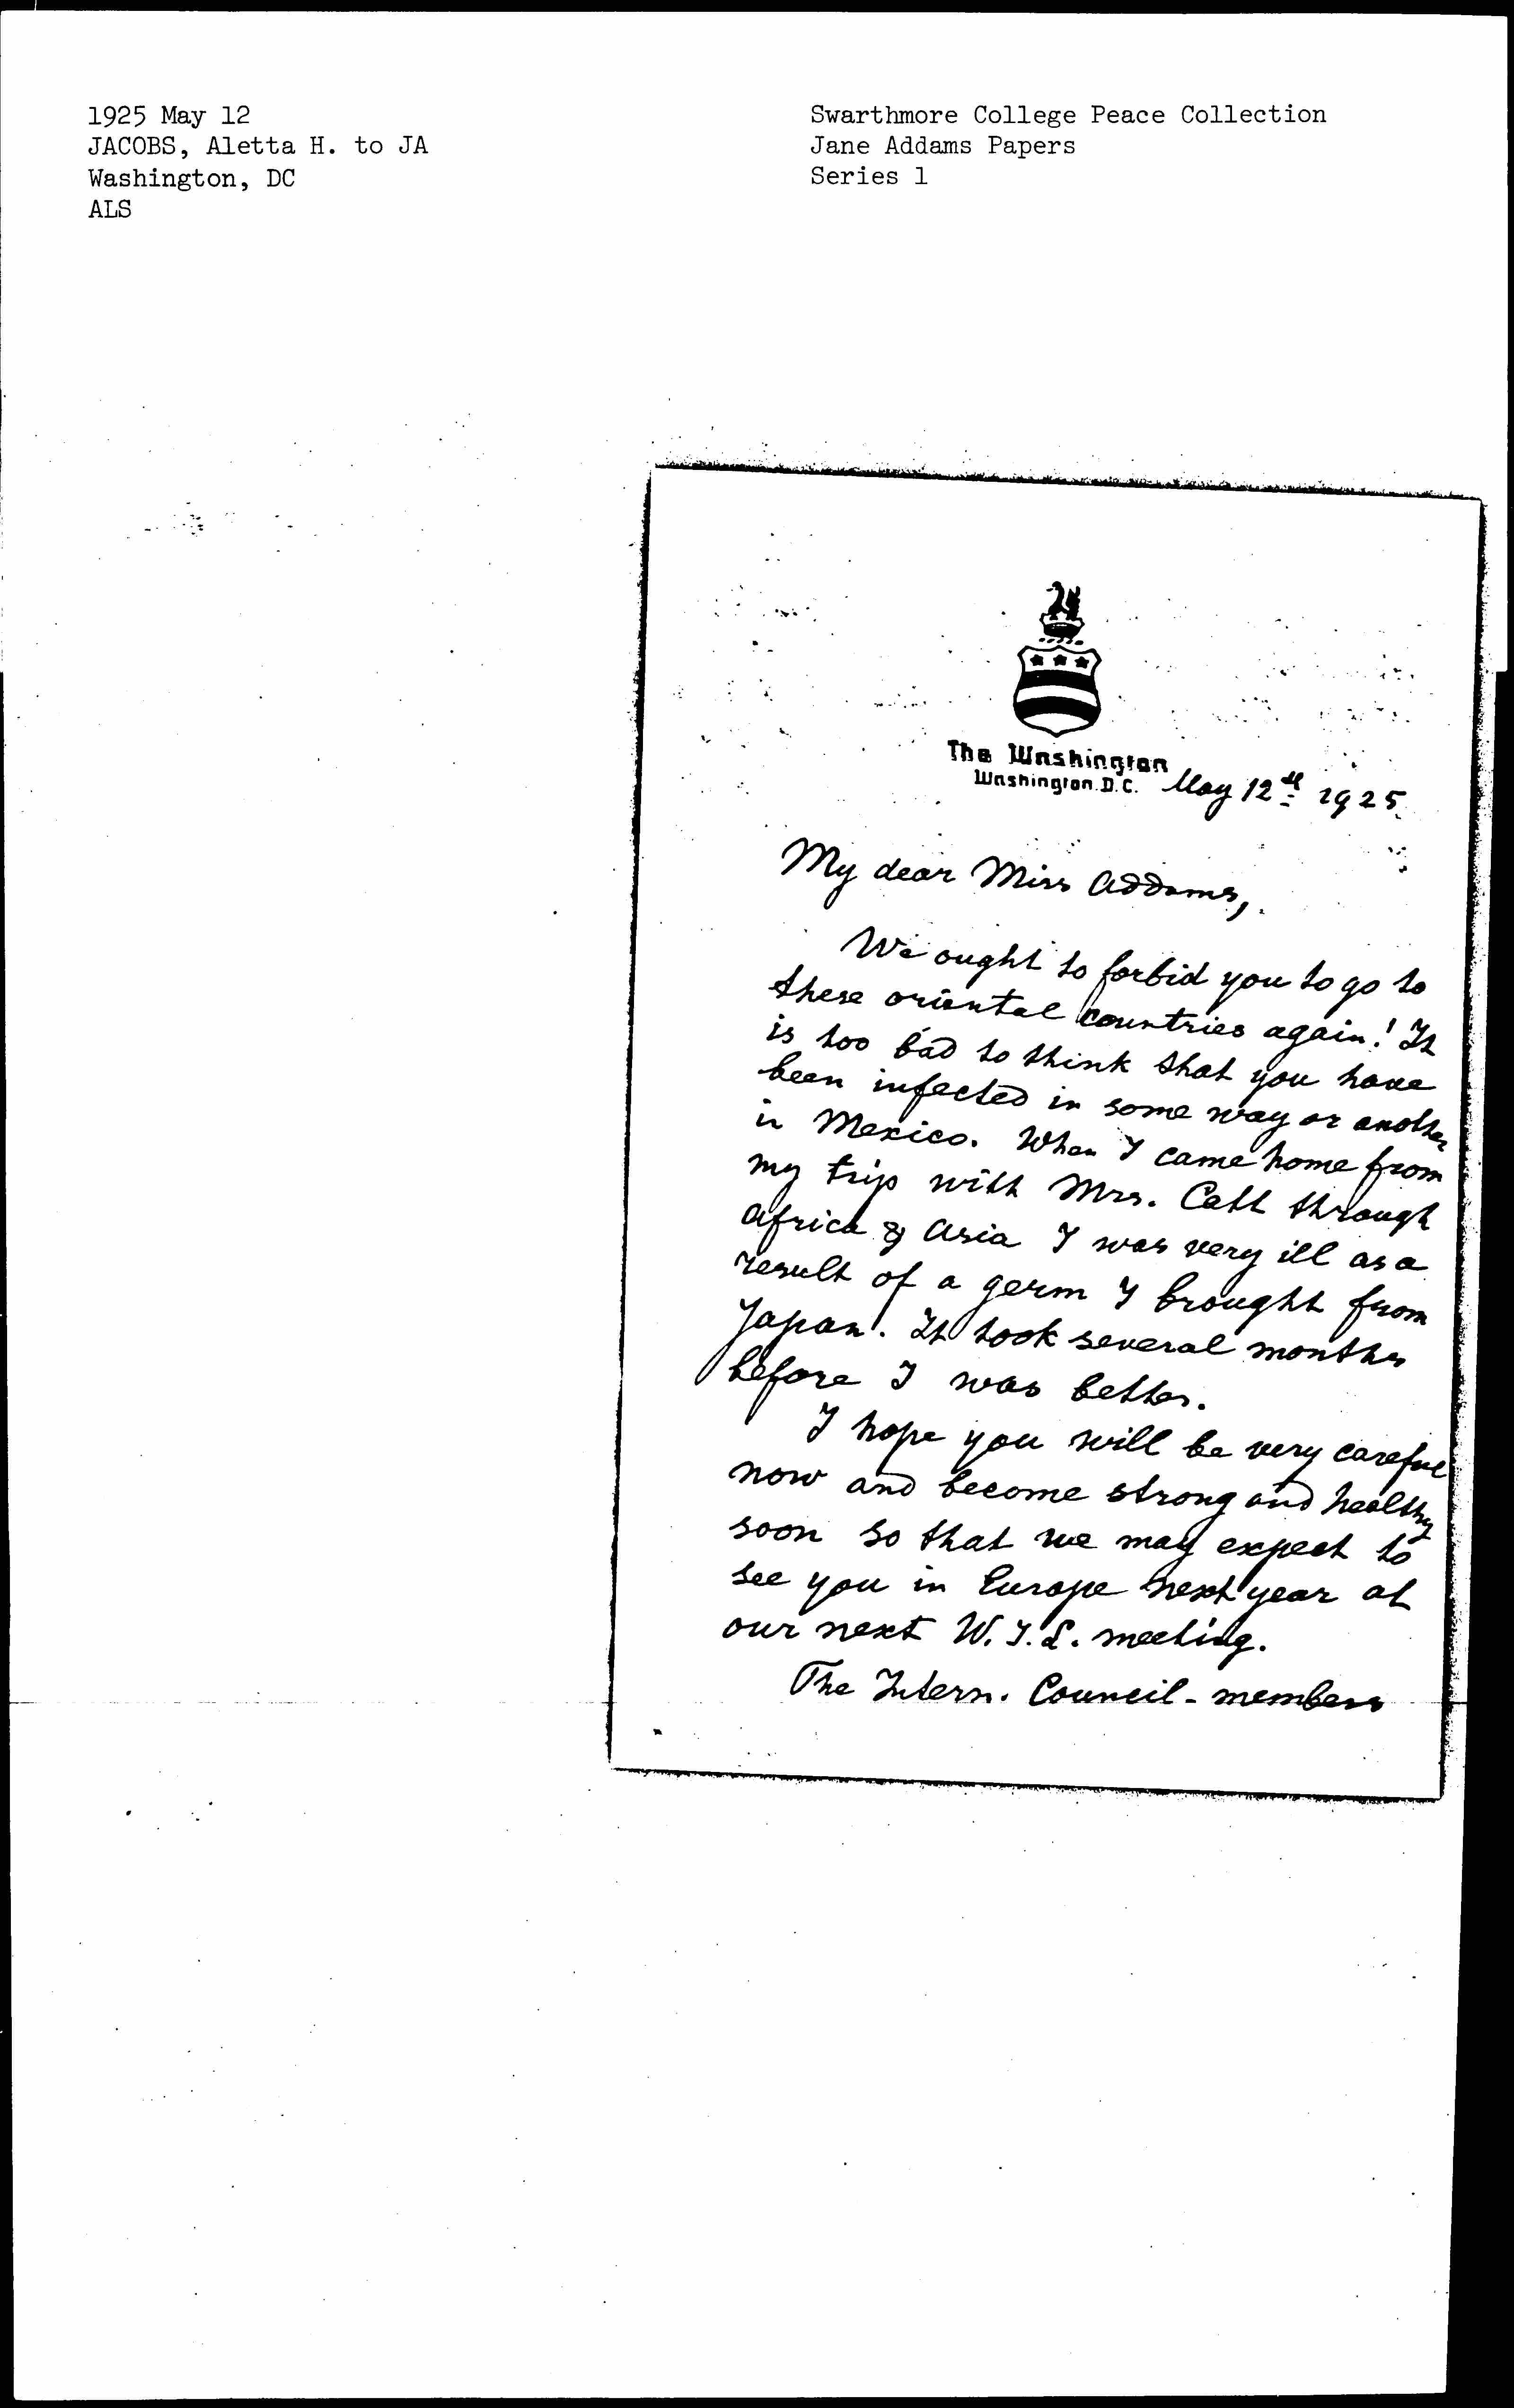 1925 May 12
JACOBS, Aletta H. to JA
Washington, DC
ALS
Swarthmore College Peace Collection
Jane Addams Papers
Series 1
The Washington
Washington. D.C. May 12th 1925.
My dear Miss Addams,
We ought to forbid you to go to
these oriental countries again! It
is too bad to think that you have
been infected in some way or another
in Mexico. When I came home from
my trip with Mrs. Catt through
Africa & Asia I was very ill as a
result of a germ I brought from
Japan. It took several months
before I was better.
I hope you will be very careful
now and become strong and healthy
soon so that we may expect to
see you in Europe next year at
our next W.I.L. meeting.
The Intern. Council-members